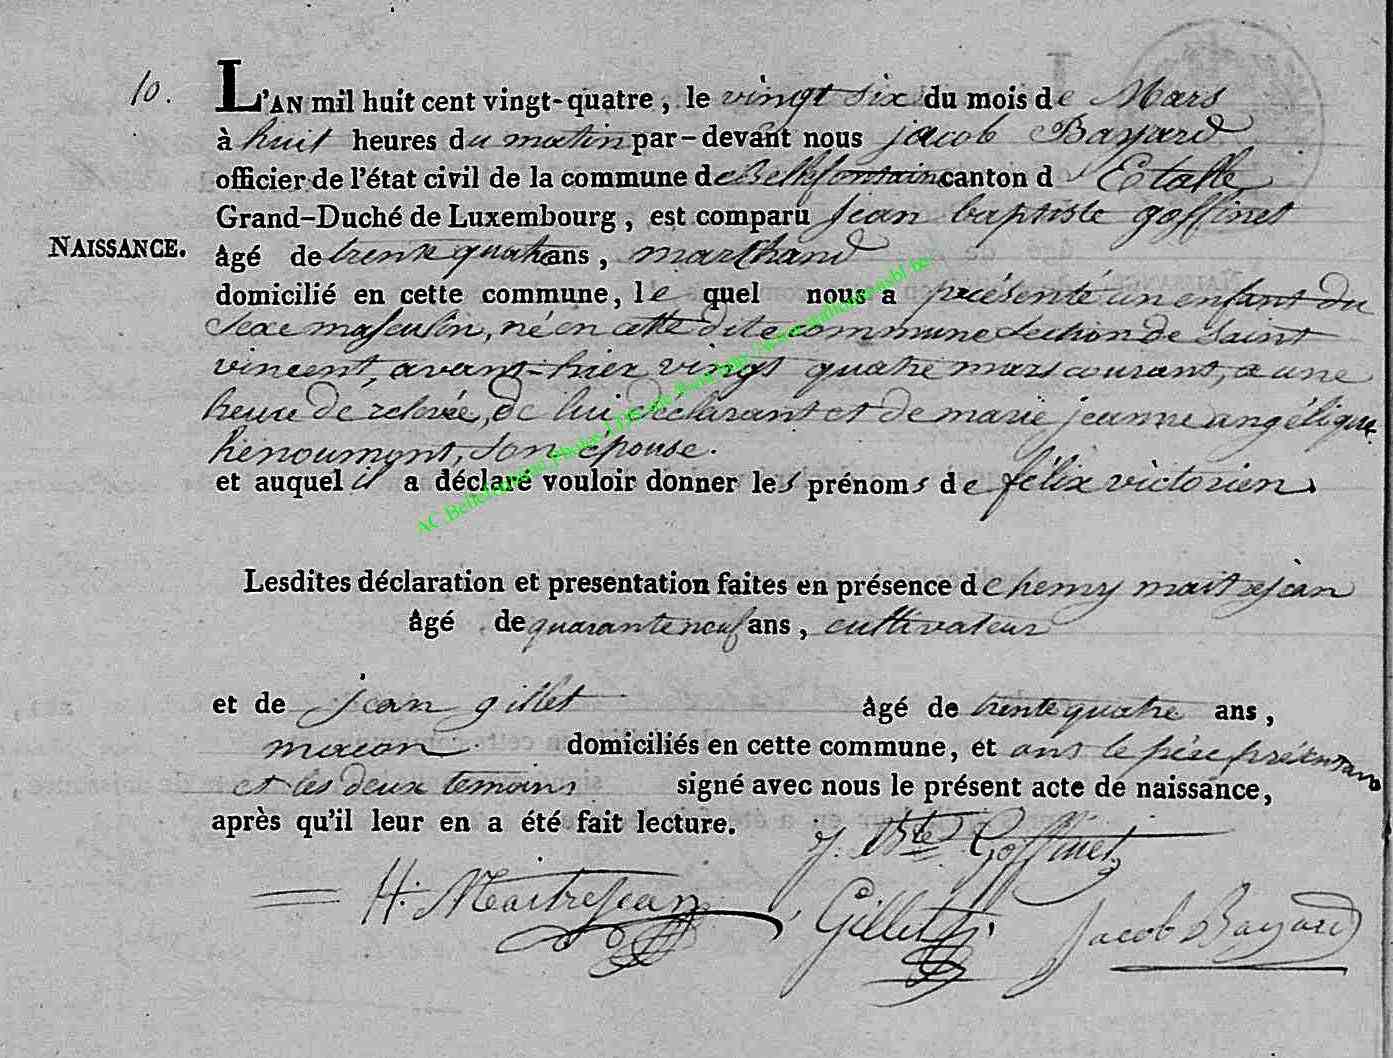 10.
L'AN mil huit cent vingt-quatre, le vingt six du mois de Mars
à huit heures du matin par-devant nous jacob Bayard
officier de l'état civil de la commune de Bellefontaine canton d'Etalle
Grand-Duché de Luxembourg, est comparu jean baptiste goffinet
NAISSANCE.
âgé de trente quatre ans, marchand
domicilié en cette commune, le quel nous a présenté un enfant du
sexe masculin, né en cette dite commune section de Saint
vincent, avant-hier vingt quatre mars courant, a une
heure de relevée, de lui déclarant et de marie jeanne angélique
henoumont, son épouse.
et auquel il a déclaré vouloir donner les prénoms de félix victorien.
AC Bellefontaine
Lesdites déclaration et presentation faites en présence de henry maitrejean
âgé de quarante neuf ans, cultivateur
et de jean gillet âgé de trente quatre ans,
macon. domiciliés en cette commune, et ont le père présentant
et les deux temoins signé avec nous le présent acte de naissance,
après qu'il leur en a été fait lecture.
J. Bte Goffinet
H. Maitrejean Gillet Jacob Bayard